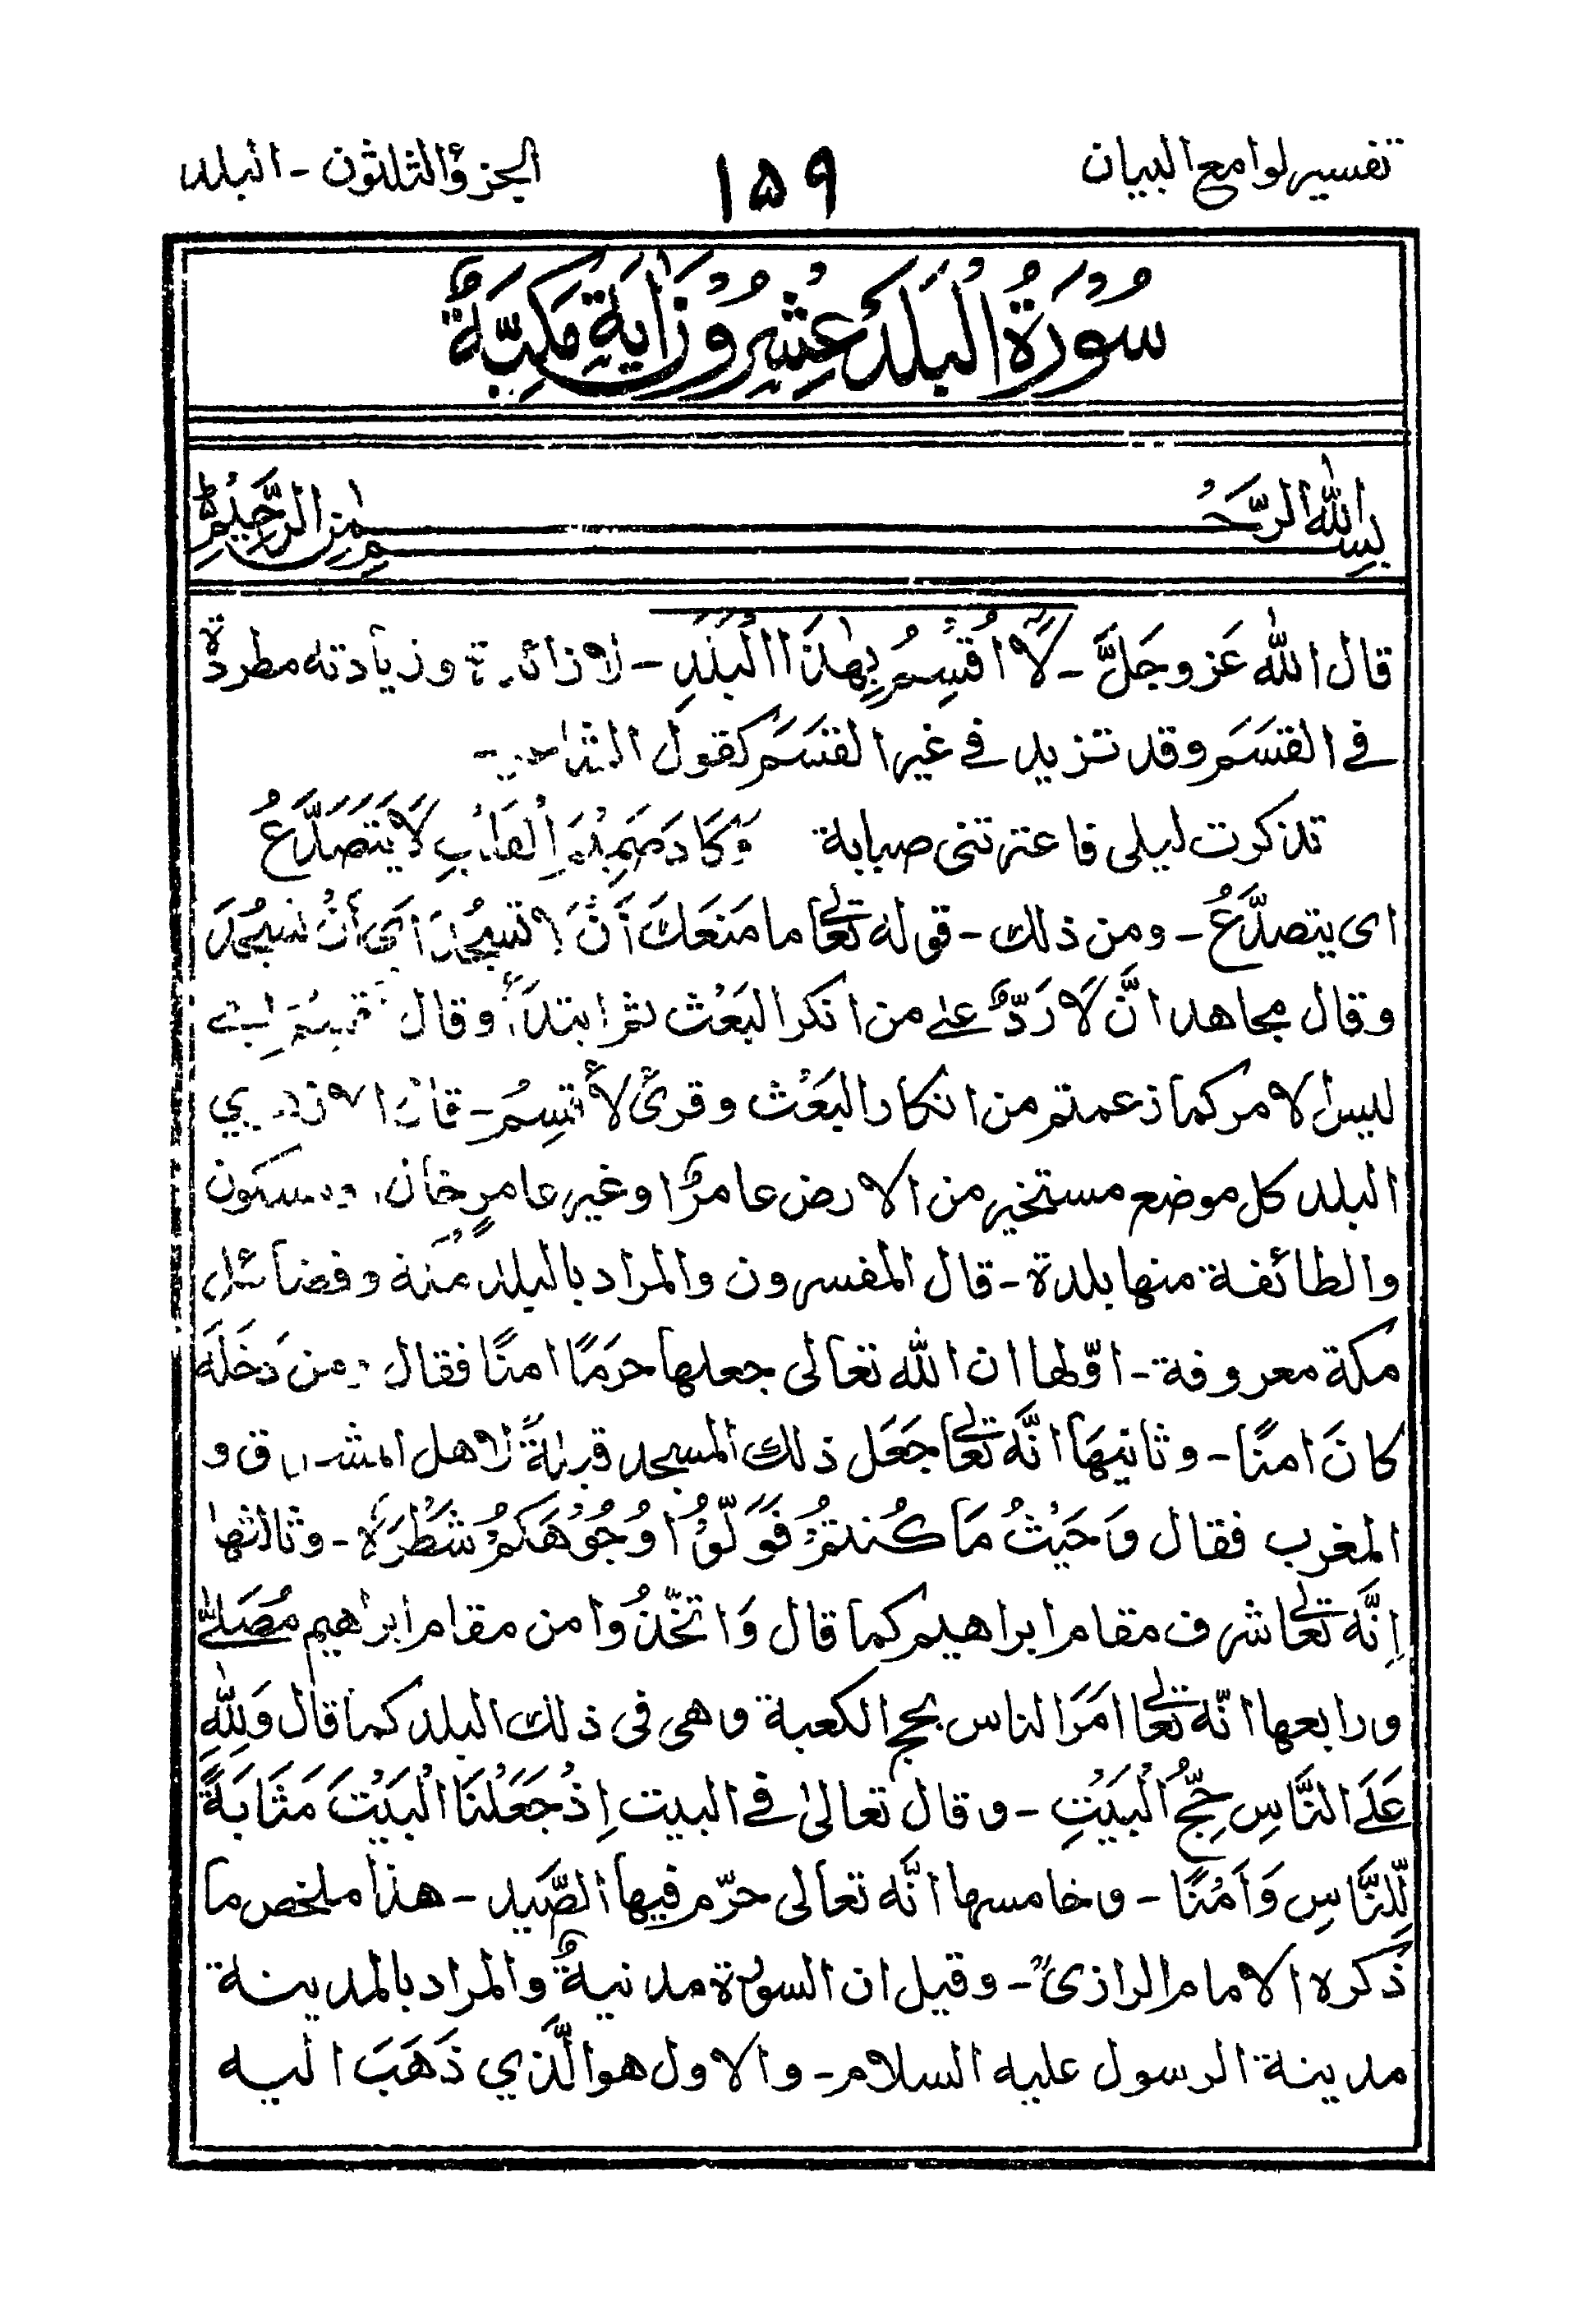 تفسير لوامع البيان ١٥٩ الجزؤ الثلثون - البلد
سُوْرَةُ الْبَلَدِ عِشْرُوْنَ اٰيَةً مَكِّيَّةٌ
بِسْمِ اللهِ الرَّحْمٰنِ الرَّحِيْمِ
قال الله عَز وجَلَّ - لَا اُقْسِمُ بِهٰذَا الْبَلَدِ - لا زائدة وزيادته مطردة
في القسَم وقد تزيد في غير القسَم كقول الشاعر -
تذكرت ليلى فاعترتنى صبابة وَكَادَ ضَمِيْرُ الْقَلْبِ لَا يَتَصَدَّعُ
اى يتصدَّعُ - ومن ذلك - قوله تعالى ما مَنَعَكَ اَنْ لا تَسْجُدَ اَى أَنْ تسجُدَ
وقال مجاهد انَّ لَا رَدٌّ على من انكر البَعْث ثم ابتدأ وقال
ليس الامر كما زعمتم من انكار البَعْث وقرئ لأُقسِمُ - قال الازهري
البلد كل موضع مستخير من الارض عامرًا وغير عامرٍ خال او مسكون
والطائفة منها بلدة - قال المفسرون والمراد بالبلد مكة وفضائل
مكة معروفة - اوّلها ان الله تعالى جعلها حرَمًا امنًا فقال ومن دَخَلَهٗ
كانَ امنًا - وثانيهَا انَّه تعالى جَعَل ذلك المسجد قبلةً لاهل المشرق و
المغرب فقال وَحَيْثُ مَا كُنتمْ فَوَلُّوْا وُجُوْهَكمُ شَطْرَهٗ - وثالثها
اِنَّه تعالى شرف مقام ابراهيم كما قال وَاتخّذُوا من مقام ابراهيم مُصَلىًّ
ورابعها انّه تعالى امَرَ الناس بحج الكعبة وهى فى ذلك البلد كما قال وَلِلّٰهِ
عَلَى النَّاسِ حِجُّ الْبَيْتِ - وقال تعالىٰ في البيت اِذْ جَعَلْنَا الْبَيْتَ مَثَابَةً
لِّلنَّاسِ وَاَمْنًا - وخامسها انَّه تعالى حرّم فيها الصَّيد - هذا ملخص ما
ذكره الامام الرازىؒ - وقيل ان السورة مدنيةٌ والمراد بالمدينة
مدينة الرسول عليه السلام - والاول هو الَّذي ذَهَبَ اليه